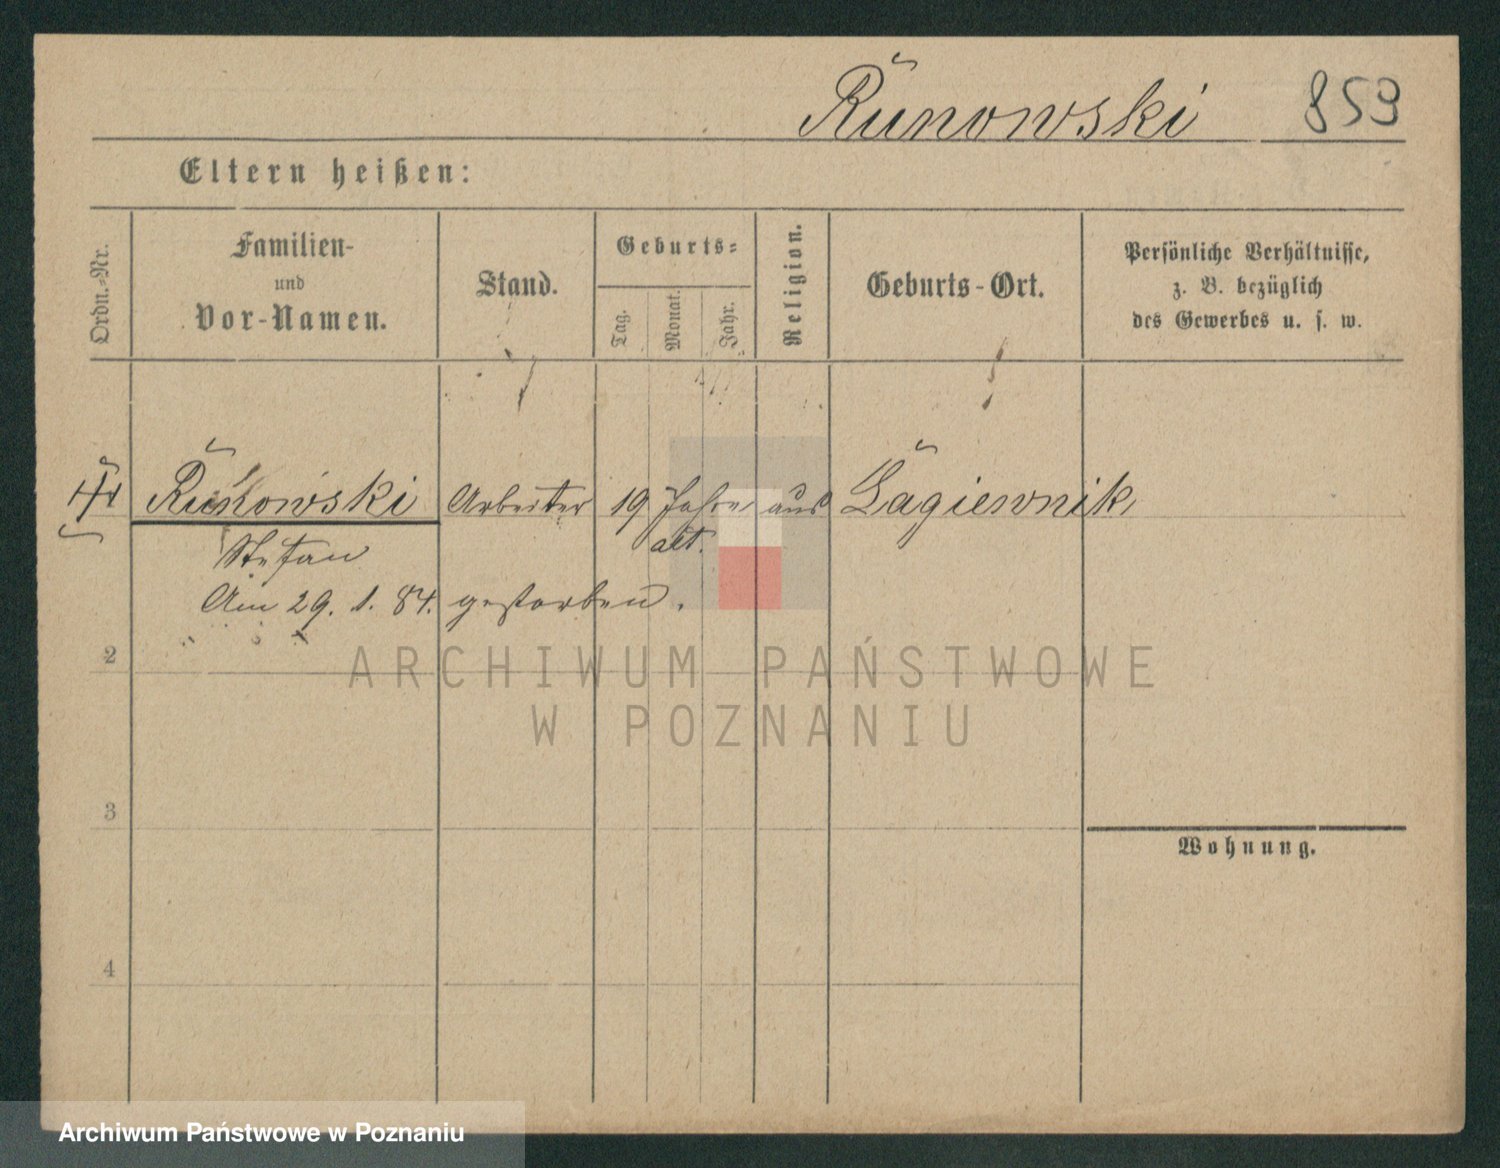 Runowski 859
Eltern heißen:
Ordn.-Nr.
Familien-
und
Vor-Namen.
Stand.
Geburts-
Tag.
Monat.
Jahr.
Religion.
Geburts-Ort.
Persönliche Verhältnisse,
z. B. bezüglich
des Gewerbes u. s. w.
Runowski Arbeiter 19 Jahre aus Lagiewnik
alt.
Stefan
Am 29. 1. 84. gestorben.
2
ARCHIWUM PAŃSTWOWE
W POZNANIU
3
Wohnung.
4
Archiwum Państwowe w Poznaniu